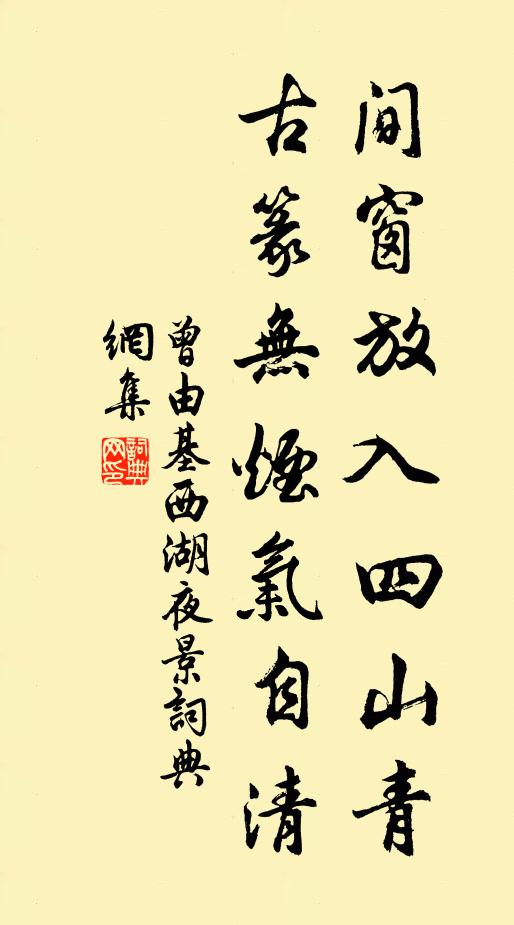 間窗放入四山青
古篆無煙氣自清
曾由基西湖夜景詞典
網集
詞典
网印